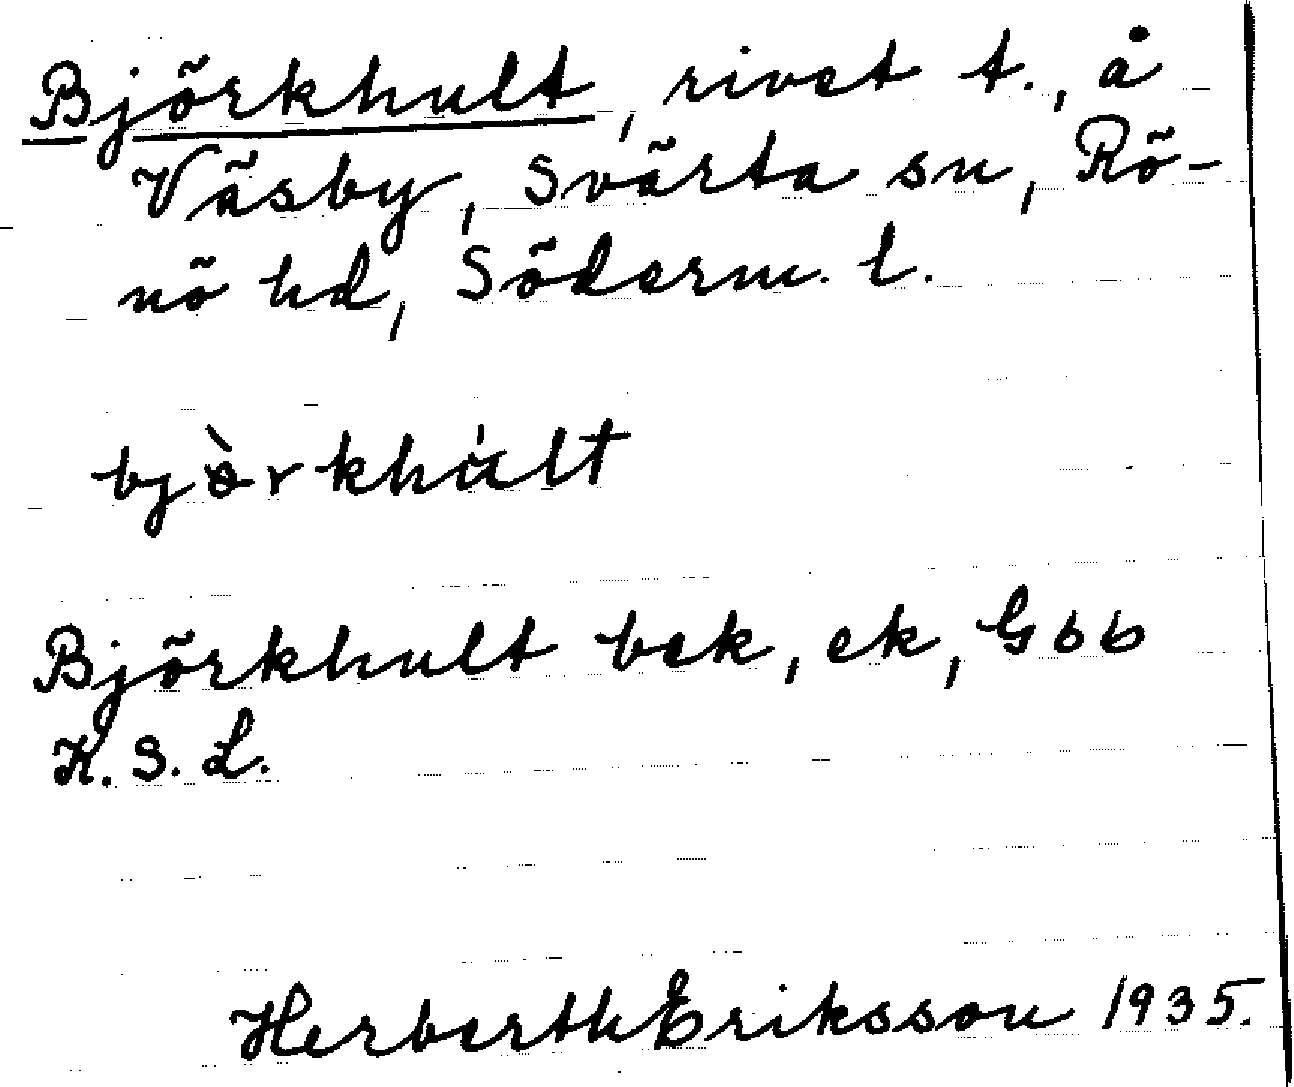 Björkhult, rivet t., å
Väsby, Svärta sn, Rö-
nö hd, Söderm. l.
bjò̈rkhúlt
Björkhult bek, ek, Gbb
K. S. L.
Herberth Eriksson 1935.